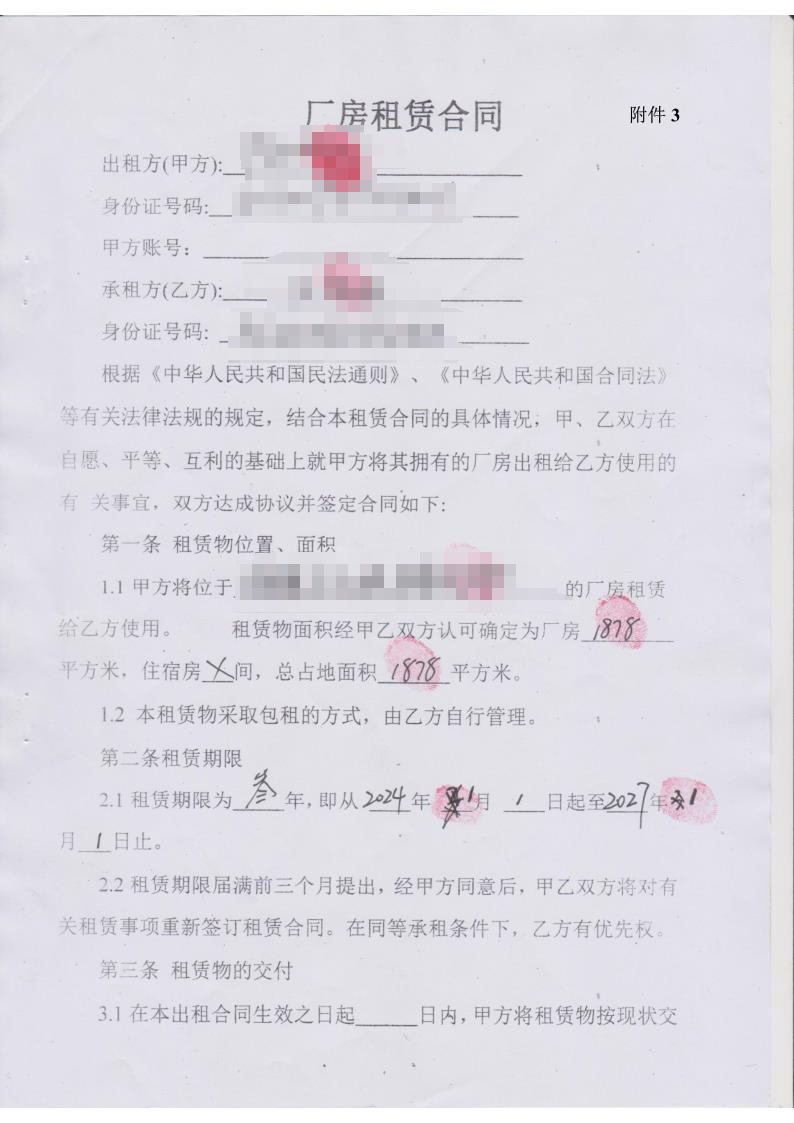 厂房租赁合同
附件 3
出租方(甲方):
身份证号码:
甲方账号：
承租方(乙方):
身份证号码:
根据《中华人民共和国民法通则》、《中华人民共和国合同法》
等有关法律法规的规定，结合本租赁合同的具体情况，甲、乙双方在
自愿、平等、互利的基础上就甲方将其拥有的厂房出租给乙方使用的
有 关事宜，双方达成协议并签定合同如下:
第一条 租赁物位置、面积
1.1 甲方将位于 的厂房租赁
给乙方使用。 租赁物面积经甲乙双方认可确定为厂房 1878
平方米，住宿房 X 间，总占地面积 1878 平方米。
1.2 本租赁物采取包租的方式，由乙方自行管理。
第二条租赁期限
2.1 租赁期限为 叁 年，即从 2024 年 1 月 1 日起至 2027 年 1
月 1 日止。
2.2 租赁期限届满前三个月提出，经甲方同意后，甲乙双方将对有
关租赁事项重新签订租赁合同。在同等承租条件下，乙方有优先权。
第三条 租赁物的交付
3.1 在本出租合同生效之日起______日内，甲方将租赁物按现状交